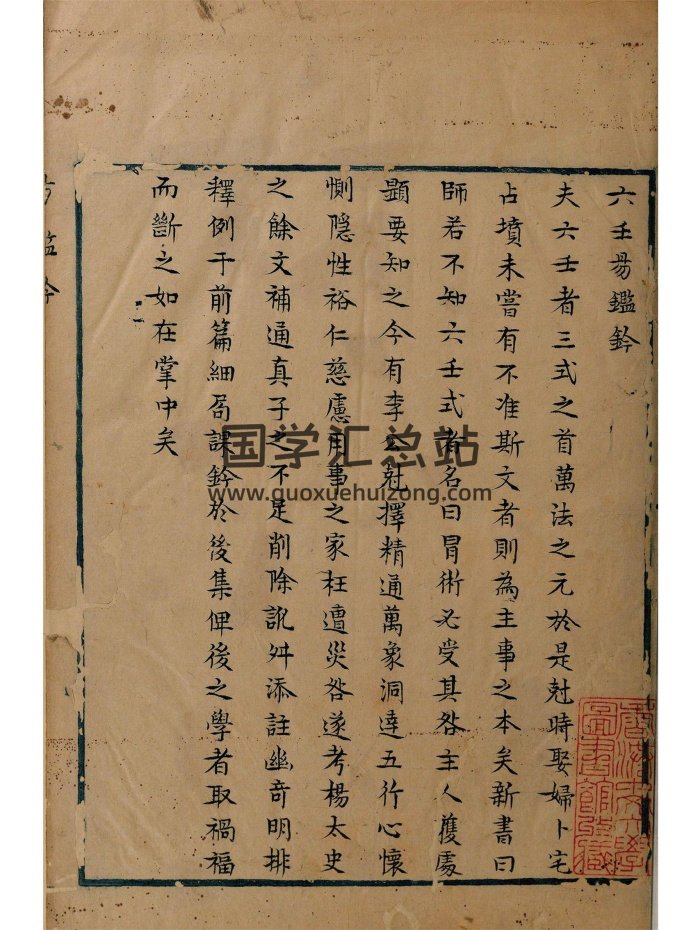 六壬昜鑑鈐
夫六壬者三式之首萬法之元於是尅時娶婦卜宅
占墳未嘗有不准斯文者則為主事之本矣新書曰
師若不知六壬式者名曰冐術必受其咎主人獲處
題要知之今有李公尅擇精通萬象洞達五行心懷
惻隱性裕仁慈慮用事之家枉遭災咎遂考楊太史
之餘文補通真子之不足削除訛舛添註幽奇明排
釋例于前篇細局課鈐於後集俾後之學者取禍福
而斷之如在掌中矣
国学汇总站
www.guoxuehuizong.com